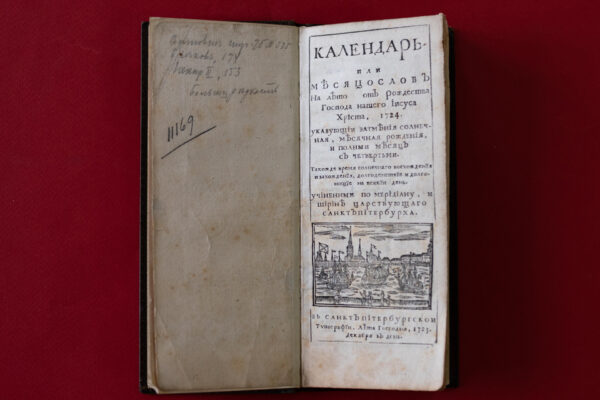 11169
КАЛЕНДАРЬ
или
МѢСЯЦОСЛОВЪ
На лѣто отъ Рождества
Господа нашего Іисуса
Хріста, 1724.
указующїи затмѣнїя солнеч-
ная, мѣсячная рожденїя,
и полный мѣсяцъ
съ четвертьми.
Такожде время солнечнаго восхожденїя
и захожденїя, долгоденствїе и долго-
на всякїи день.
по мерїдїану, и
шїрїнѣ царствующаго
САНКТЪПІТЕРБУРХА.
въ САНКТЪПІТЕРБУРГСКОМ
Тупографіи. Лѣта Господня, 1723.
Декабря въ день.